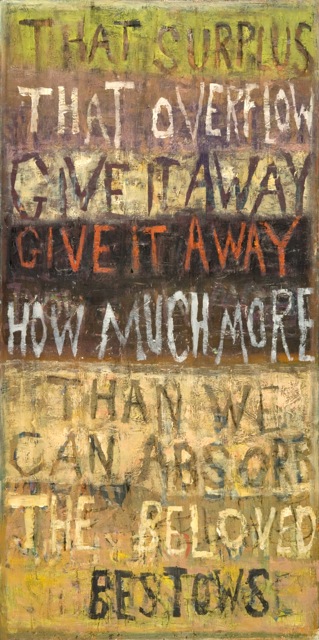 THAT SURPLUS
THAT OVERFLOW
GIVE IT AWAY
GIVE IT AWAY
HOW MUCH MORE
THAN WE
CAN ABSORB
THE BELOVED
BESTOWS